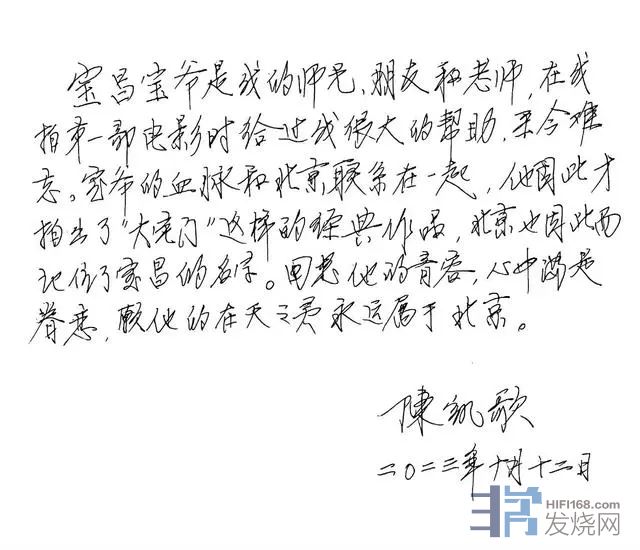 宝昌宝爷是我的师兄、朋友和老师，在我
拍第一部电影时给过我很大的帮助，至今难
忘。宝爷的血脉和北京联系在一起，他因此才
拍出了“大宅门”这样的经典作品，北京也因此而
记住了宝昌的名字。回想他的音容，心中满是
眷恋，愿他的在天之灵永远属于北京。
陳凯歌
二〇二三年十月十二日
HIFI168.com
发烧网